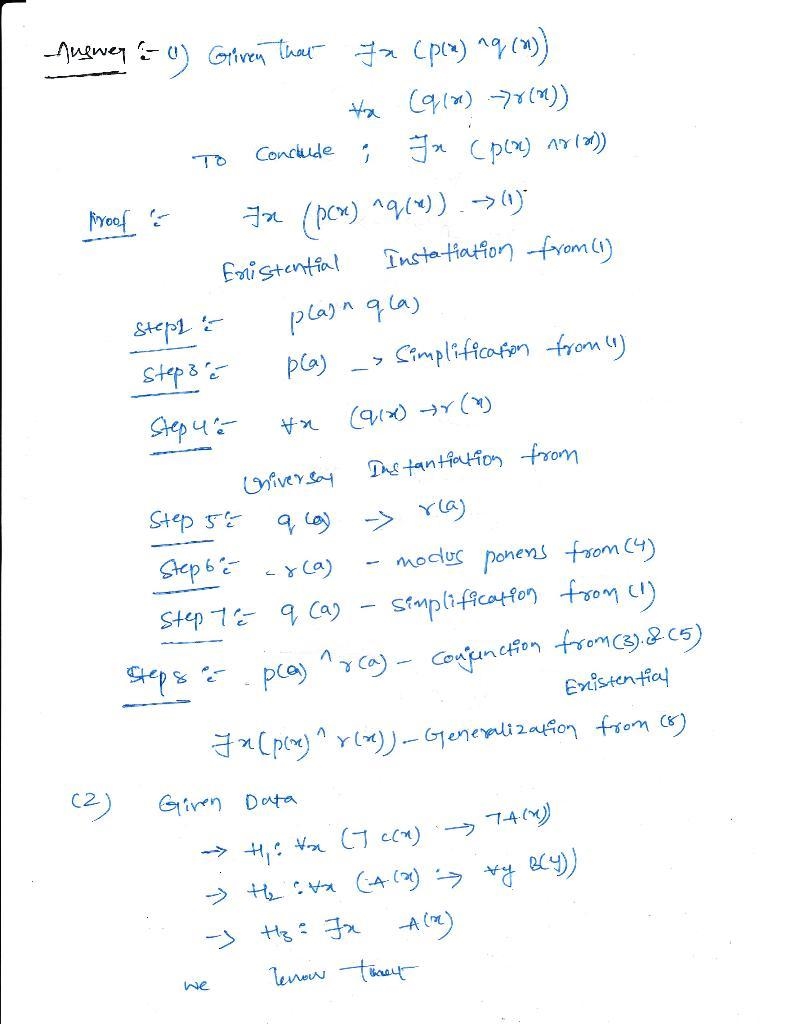 Answer :- (1) Given That ∃x (p(x) ∧ q(x))
∀x (q(x) → r(x))
To Conclude ; ∃x (p(x) ∧ r(x))
Proof :- ∃x (p(x) ∧ q(x)) → (1)
Existential Instatiation from (1)
Step2 :- p(a) ∧ q(a)
Step 3 :- p(a) → Simplification from (1)
Step 4 :- ∀x (q(x) → r(x)
Universal Instantiation from
Step 5 :- q(a) → r(a)
Step 6 :- r(a) - modus ponens from (4)
Step 7 :- q(a) - Simplification from (1)
Step 8 :- p(a) ∧ r(a) - Conjunction from (3) & (5)
Existential
∃x (p(x) ∧ r(x)) - Generalization from (8)
(2) Given Data
→ H₁: ∀x (¬ C(x) → ¬A(x))
→ H₂ : ∀x (A(x) → ∀y B(y))
→ H₃ : ∃x A(x)
we know that